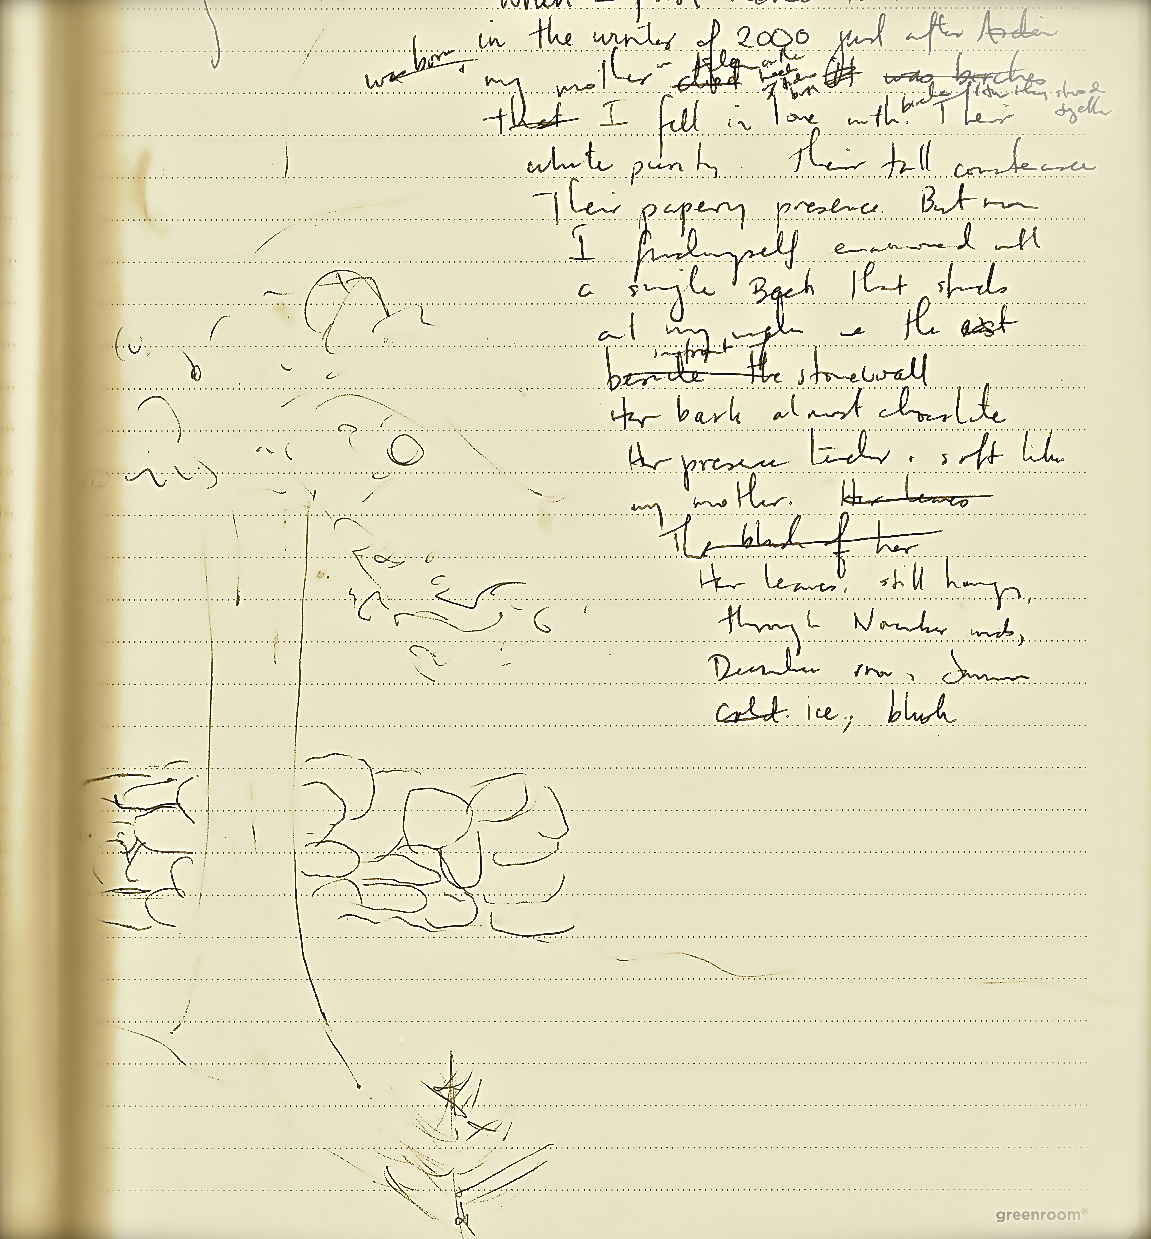 when I first moved
in the winter of 2000 just after Aidan
was born,
my mother died it was birches
that I fell in love with. Their
birches how they stood together
white purity Their tall constance
Their papery presence. But now
I find myself enamored with
a single Beech that stands
at my in the east
in front
beside the stonewall
Her bark almost chocolate
Her presence tender, soft like
my mother. Her leaves
The blush of her
Her leaves, still hangs,
through November winds,
December snow, January
cold ice, blush
greenroom®